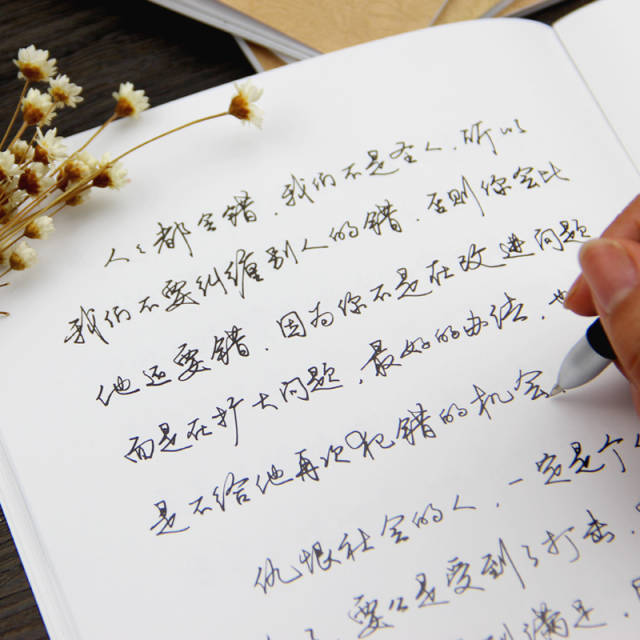 人人都会错。我们不是圣人，所以
我们不要纠缠到人的错，否则你会比
他还要错。因为你不是在改进问题
而是在扩大问题，最好的办法，也
是不给他再次犯错的机会
仇恨社会的人，一定是个
要么是受到了打击，
满足